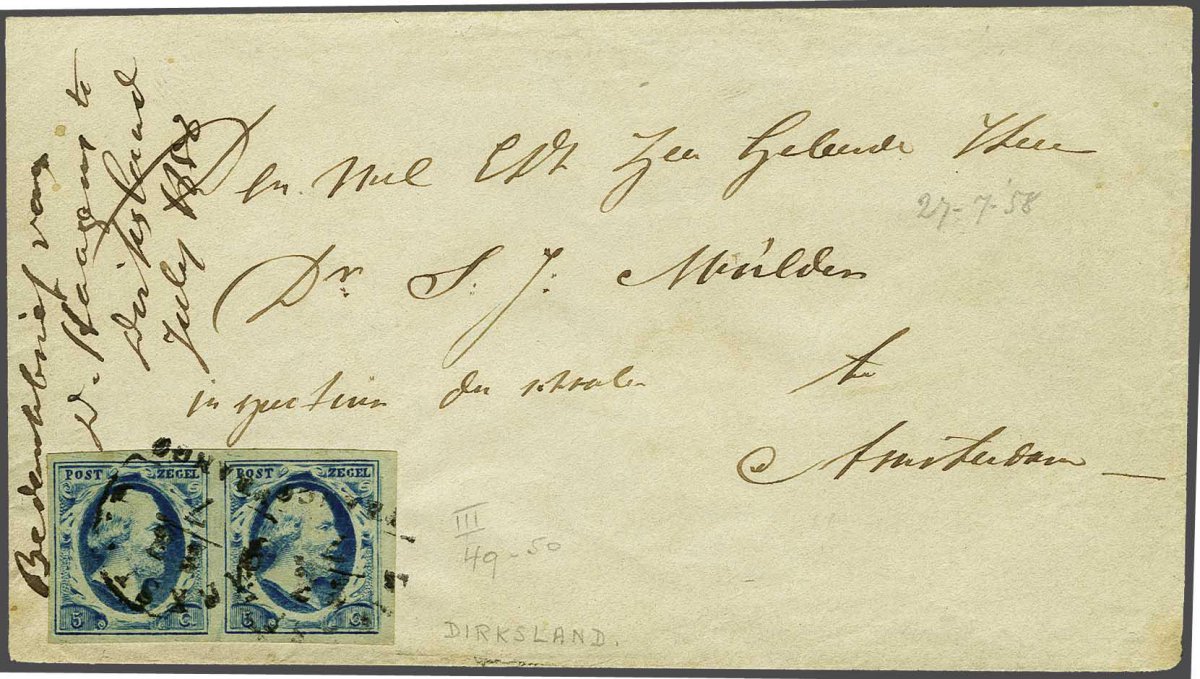 Bedankbrief van
D. Haagens te
Dirksland
July 1858
Den Wel Edt Zeer Geleerde Heer
27-7-'58
Dr. S. J. Mülder
inspecteur der scholen te
Amsterdam
POST ZEGEL
5 C.
POST ZEGEL
5 C.
III
49-50
DIRKSLAND.